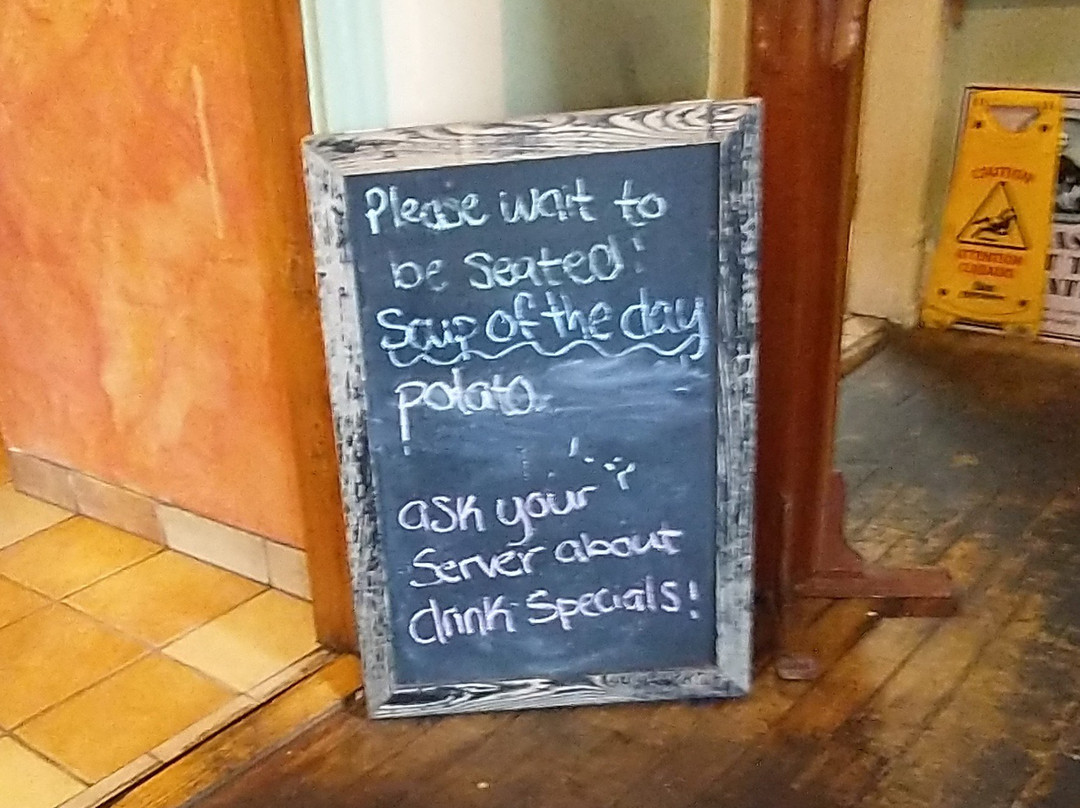 Please wait to
be seated!
Soup of the day
potato
ask your
Server about
drink Specials!
CAUTION